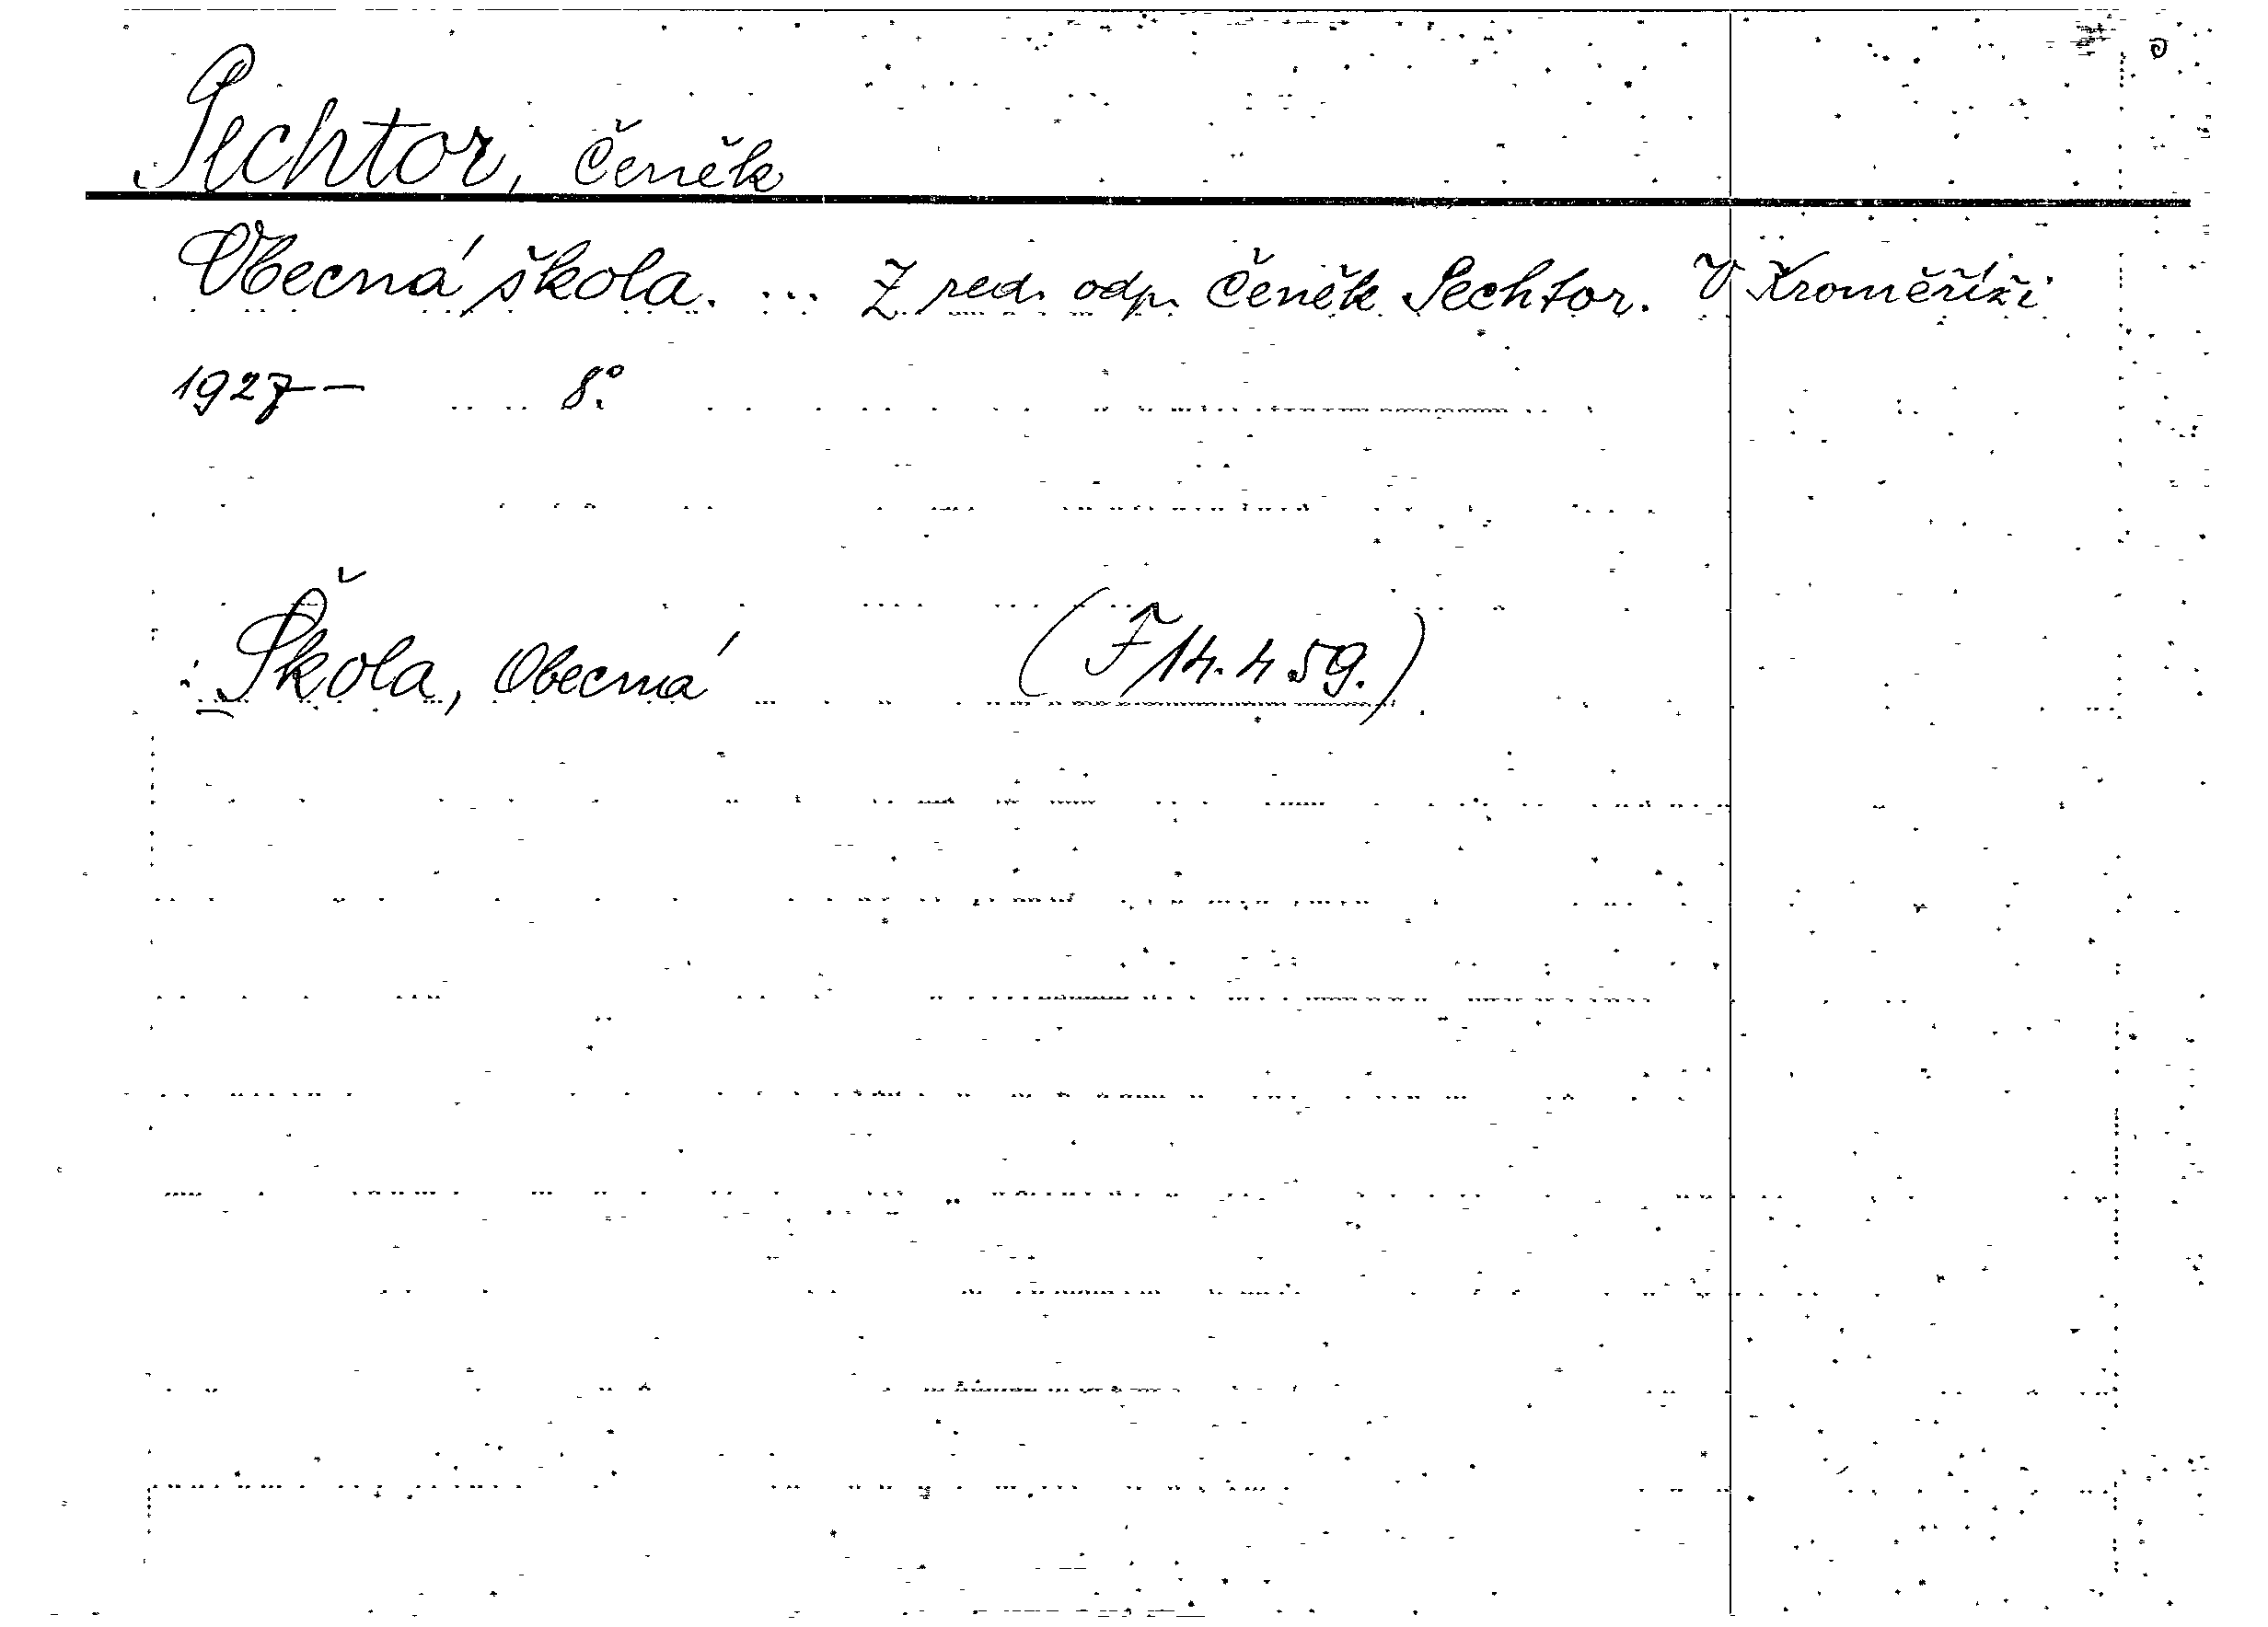 Sechtor, Čeněk
Obecná škola. ... Z red. odp. Čeněk Sechtor. V Kroměříži
1927— 8°.
: Škola, Obecná (F 14.459.)